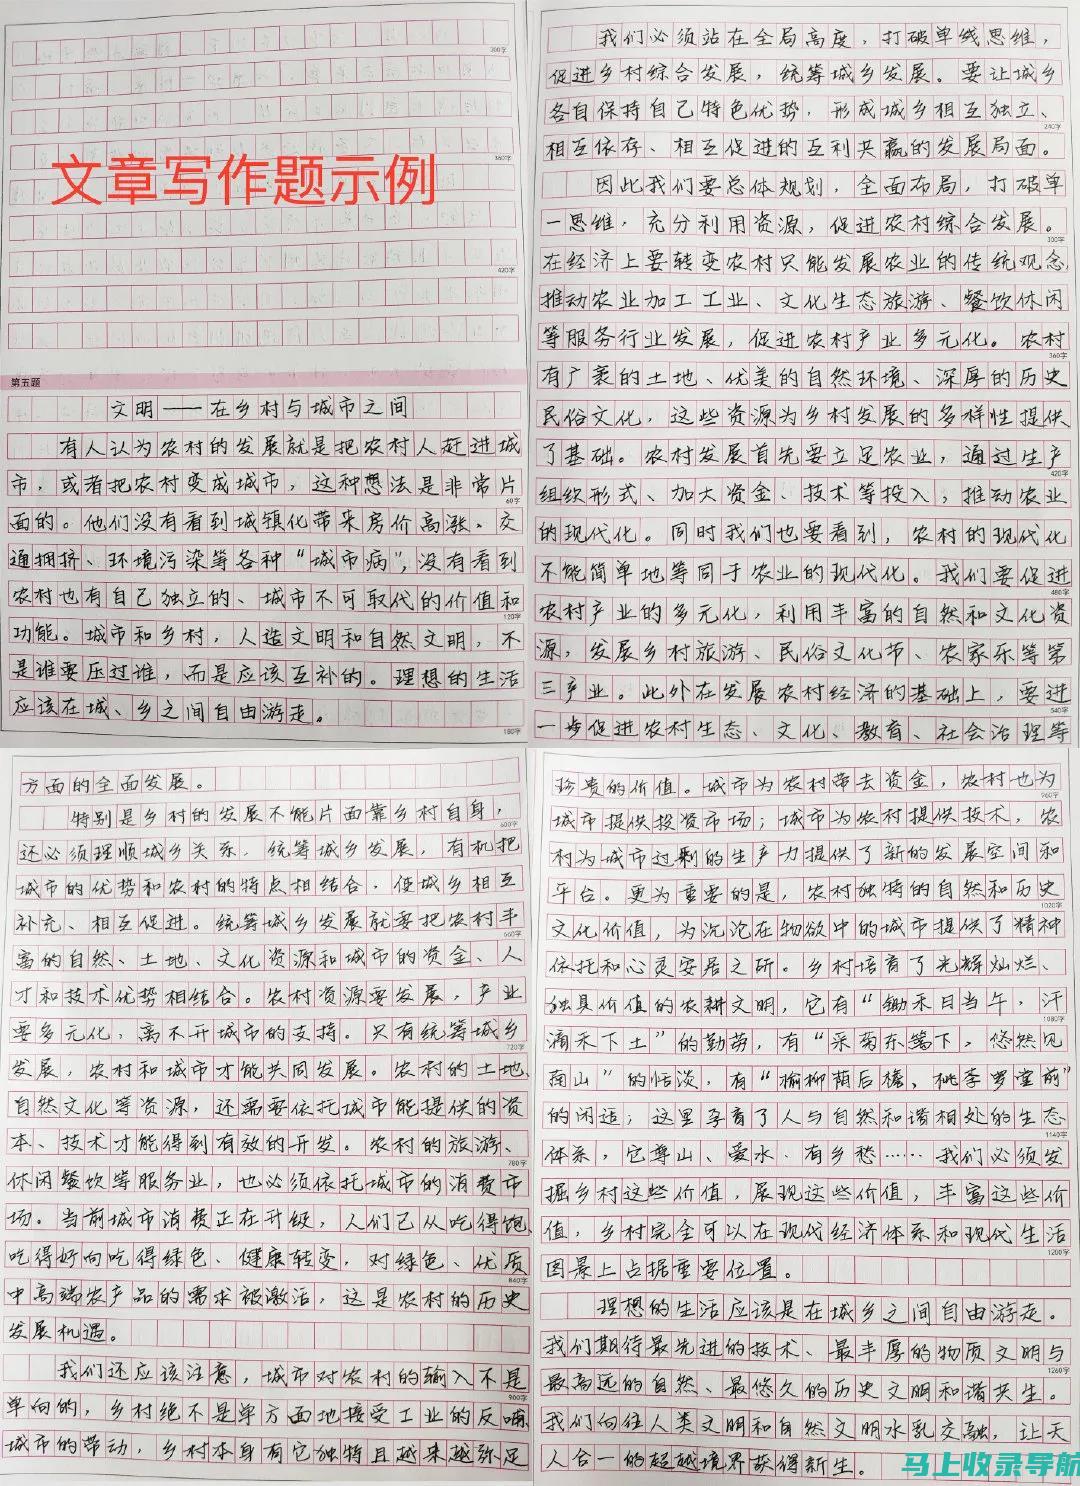 300字
360字
文章写作题示例
420字
第五题
文明——在乡村与城市之间
有人认为农村的发展就是把农村人赶进城
市，或者把农村变成城市，这种想法是非常片
60字
面的。他们没有看到城镇化带来房价高涨、交
通拥挤、环境污染等各种“城市病”，没有看到
农村也有自己独立的、城市不可取代的价值和
120字
功能。城市和乡村，人造文明和自然文明，不
是谁要压过谁，而是应该互补的。理想的生活
应该在城、乡之间自由游走。
180字
我们必须站在全局高度，打破单线思维，
促进乡村综合发展，统筹城乡发展。要让城乡
各自保持自己特色优势，形成城乡相互独立、
240字
相互依存、相互促进的互利共赢的发展局面。
因此我们要总体规划，全面布局，打破单
一思维，充分利用资源，促进农村综合发展。
300字
在经济上要转变农村只能发展农业的传统观念，
推动农业加工工业、文化生态旅游、餐饮休闲
等服务行业发展，促进农村产业多元化。农村
360字
有广袤的土地、优美的自然环境、深厚的历史
民俗文化，这些资源为乡村发展的多样性提供
了基础。农村发展首先要立足农业，通过生产
420字
组织形式、加大资金、技术等投入；推动农业
的现代化。同时我们也要看到，农村的现代化
不能简单地等同于农业的现代化。我们要促进
480字
农村产业的多元化，利用丰富的自然和文化资
源，发展乡村旅游、民俗文化节、农家乐等第
三产业。此外在发展农村经济的基础上，要进
540字
一步促进农村生态、文化、教育、社会治理等
方面的全面发展。
特别是乡村的发展不能片面靠乡村自身，
600字
还必须理顺城乡关系，统筹城乡发展，有机把
城市的优势和农村的特点相结合，使城乡相互
补充、相互促进。统筹城乡发展就要把农村丰
660字
富的自然、土地、文化资源和城市的资金、人
才和技术优势相结合。农村资源要发展，产业
要多元化，离不开城市的支持。只有统筹城乡
720字
发展，农村和城市才能共同发展。农村的土地、
自然文化等资源，还需要依托城市能提供的资
本、技术才能得到有效的开发。农村的旅游、
780字
休闲餐饮等服务业，也必须依托城市的消费市
场。当前城市消费正在升级，人们已从吃得饱、
吃得好向吃得绿色、健康转变，对绿色、优质
840字
中高端农产品的需求被激活，这是农村的历史
发展机遇。
我们还应该注意，城市对农村的输入不是
900字
单向的，乡村绝不是单方面地接受工业的反哺，
城市的带动，乡村本身有它独特且越来越弥足
珍贵的价值。城市为农村带去资金，农村也为
960字
城市提供投资市场；城市为农村提供技术，农
村为城市过剩的生产力提供了新的发展空间和
平台。更为重要的是，农村独特的自然和历史
1020字
文化价值，为沉沦在物欲中的城市提供了精神
依托和心灵安居之所。乡村培育了光辉灿烂、
独具价值的农耕文明，它有“锄禾日当午，汗
1080字
滴禾下土”的勤劳，有“采菊东篱下，悠然见
南山”的恬淡，有“榆柳荫后檐，桃李罗堂前”
的闲适；这里孕育了人与自然和谐相处的生态
1140字
体系，它尊山、爱水、有乡愁……我们必须发
掘乡村这些价值，展现这些价值，丰富这些价
值，乡村完全可以在现代经济体系和现代生活
1200字
图景上占据重要位置。
理想的生活应该是在城乡之间自由游走。
我们期待最先进的技术、最丰厚的物质文明与
1260字
最高远的自然、最悠久的历史文明和谐共生。
我们向往人类文明和自然文明水乳交融，让天
人合一的超越境界获得新生。
马上收录导航